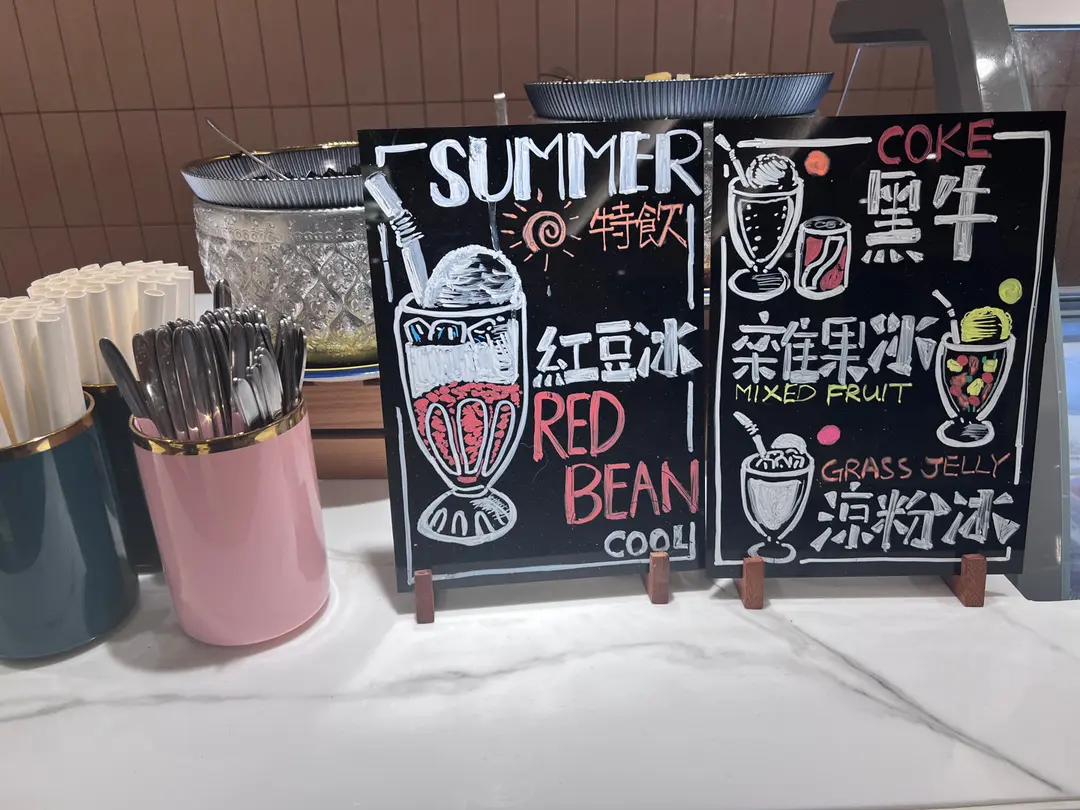 SUMMER
特飲
紅豆冰
RED
BEAN
COOL
COKE
黑牛
雜果冰
MIXED FRUIT
GRASS JELLY
涼粉冰